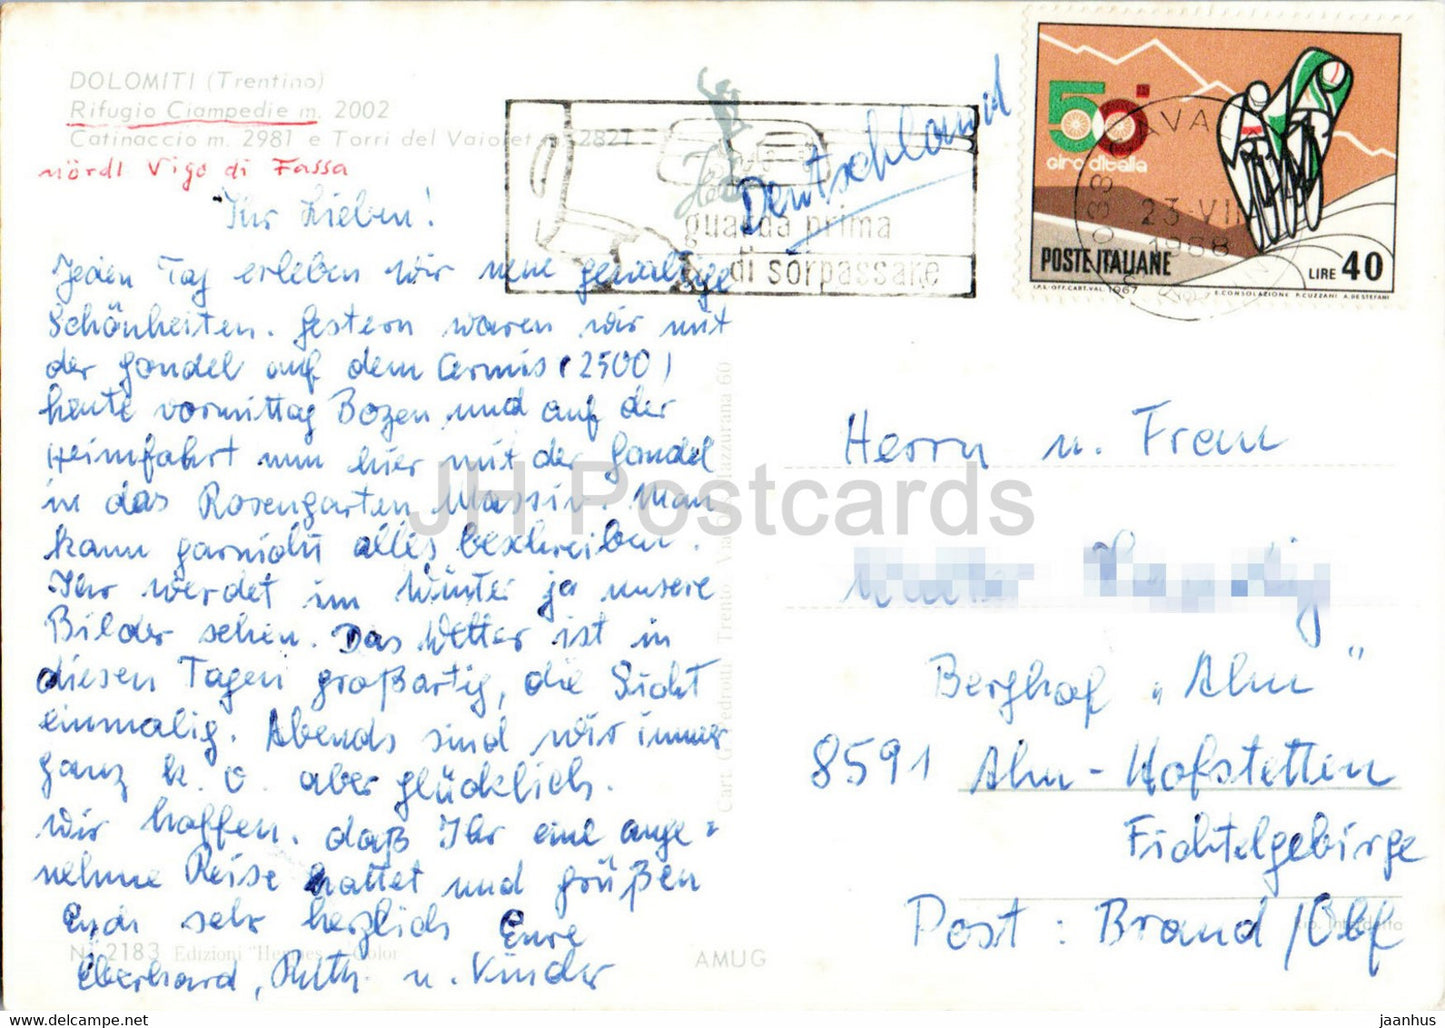 DOLOMITI (Trentino)
Rifugio Ciampedie m. 2002
Catinaccio m. 2981 e Torri del Vaiolet m. 2821
nördl Vigo di Fassa
Ihr Lieben!
Jeden Tag erleben wir neue gewaltige
Schönheiten. Gestern waren wir mit
der Gondel auf dem Cermis (2500)
heute vormittag Bozen und auf der
Heimfahrt nun hier mit der Gondel
in das Rosengarten Massiv. Man
kann garnicht alles beschreiben.
Ihr werdet im Winter ja unsere
Bilder sehen. Das Wetter ist in
diesen Tagen großartig, die Sicht
einmalig. Abends sind wir immer
ganz k. o. aber glücklich.
Wir hoffen, daß Ihr eine ange=
nehme Reise hattet und grüßen
Euch sehr herzlich Eure
Eberhard, Ruth u. Kinder
No 2183 Edizioni "Hermes" - Color
AMUG
Cart. G. Pedrotti Trento Via
60
guarda prima
di sorpassare
Deutschland
50°
giro d'italia
POSTE ITALIANE
LIRE 40
I.P.S.-OFF.CART.VAL. 1967
E. CONSOLAZIONE R. CUZZANI A. DE STEFANI
CAVAL
23·VII
1968
Herrn u. Frau
Berghof „Alm"
8591 Alm-Hofstetten
Fichtelgebirge
Post: Brand/Obf
Rip. Interdetta
JH Postcards
www.hippostcard.com/store/jh-postcards
jaanhus